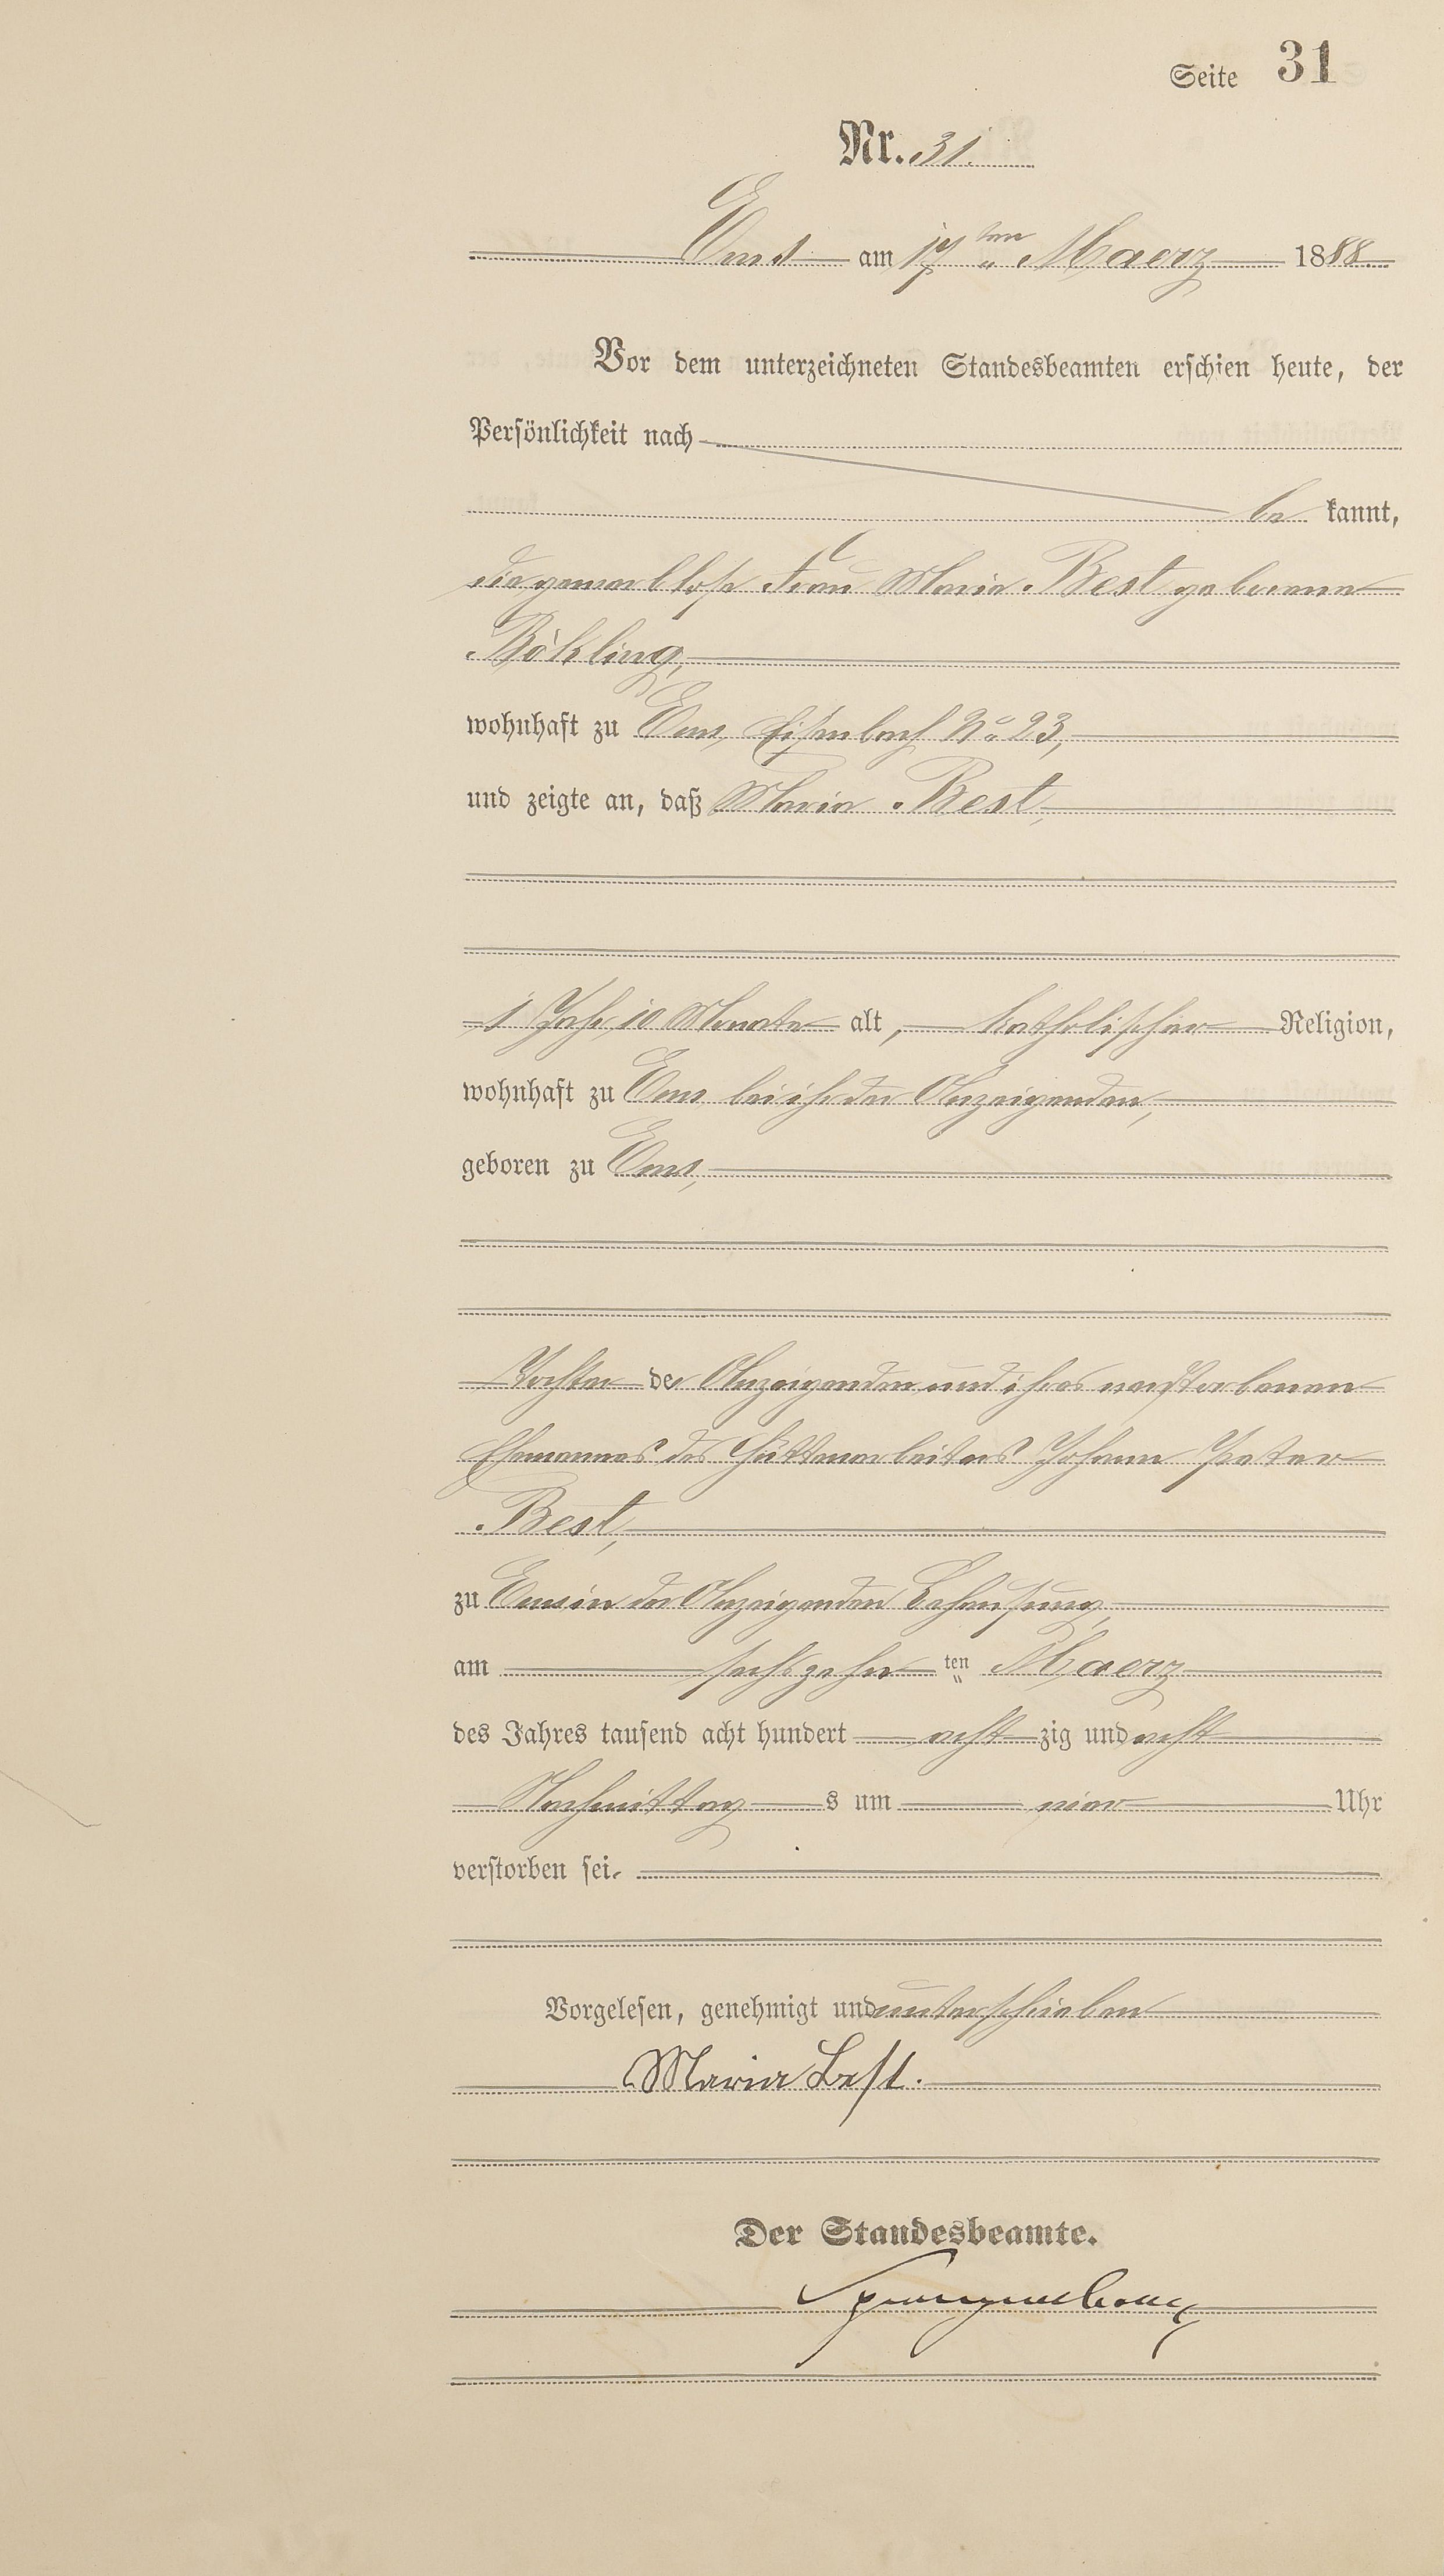 Seite 31
Nr. 31.
Ems am 17 ten März 1888.
Vor dem unterzeichneten Standesbeamten erschien heute, der
Persönlichkeit nach
be kannt,
die gewerblose Frau Maria Best geborene
wohnhaft zu Ems, Eisenbach No 23,
und zeigte an, daß Maria Best,
1 Jahr, 10 Monate alt, katholischer Religion,
wohnhaft zu Ems bei ihr der Anzeigenden,
geboren zu Ems,
Tochter der Anzeigenden und ihres verstorbenen
Ehemannes des Hüttenarbeiters Johann Peter
Best,
zu Ems in der Anzeigenden Behausung,
am sechszehn ten Maerz
des Jahres tausend acht hundert acht zig und acht
Nachmittag s um vier Uhr
verstorben sei.
Vorgelesen, genehmigt und unterschrieben
Maria Best.
Der Standesbeamte.